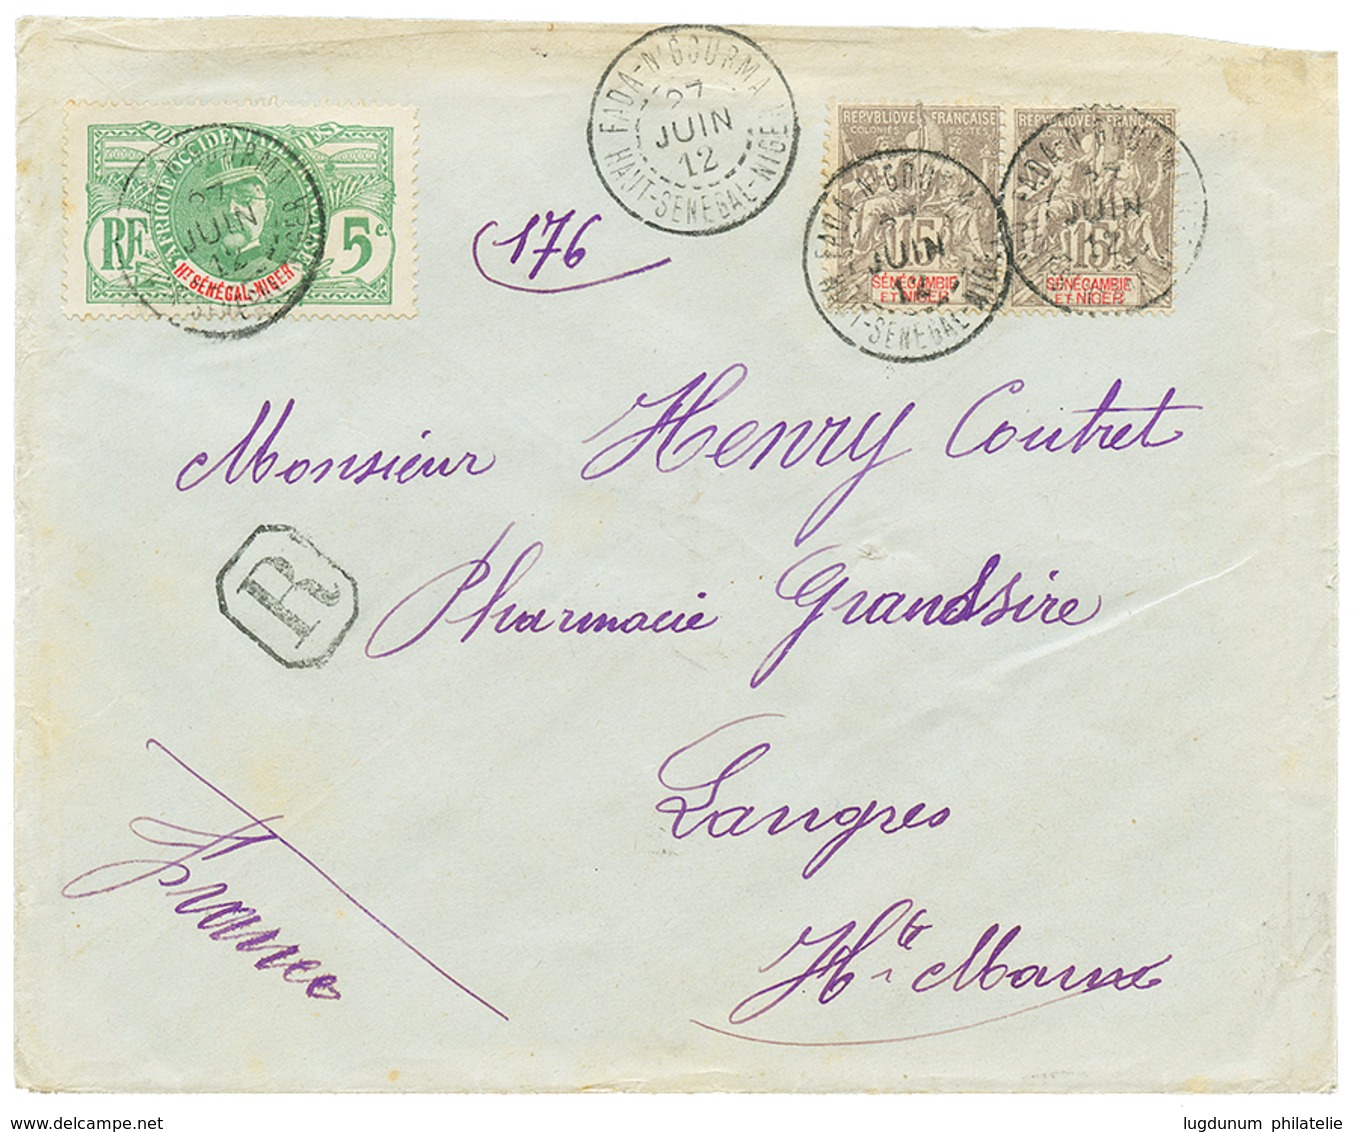 FADA-N'GOURMA
27
JUIN
12
HAUT-SENEGAL-NIGER
POSTES
AFRIQUE OCCIDENTALE FRANÇAISE
RF
5c.
Ht SÉNÉGAL-NIGER
27
JUIN
12
REPVBLIQVE FRANÇAISE
COLONIES POSTES
15
SÉNÉGAMBIE
ET NIGER
FADA-N'GOURMA
JUIN
HAUT-SENEGAL-NIGER
REPVBLIQVE FRANÇAISE
COLONIES POSTES
15
SÉNÉGAMBIE
ET NIGER
27
JUIN
12
176
Monsieur Henry Coutret
R
Pharmacie Grandsire
Langres
Hte Marne
France
delcampe.net
lugdunum philatelie